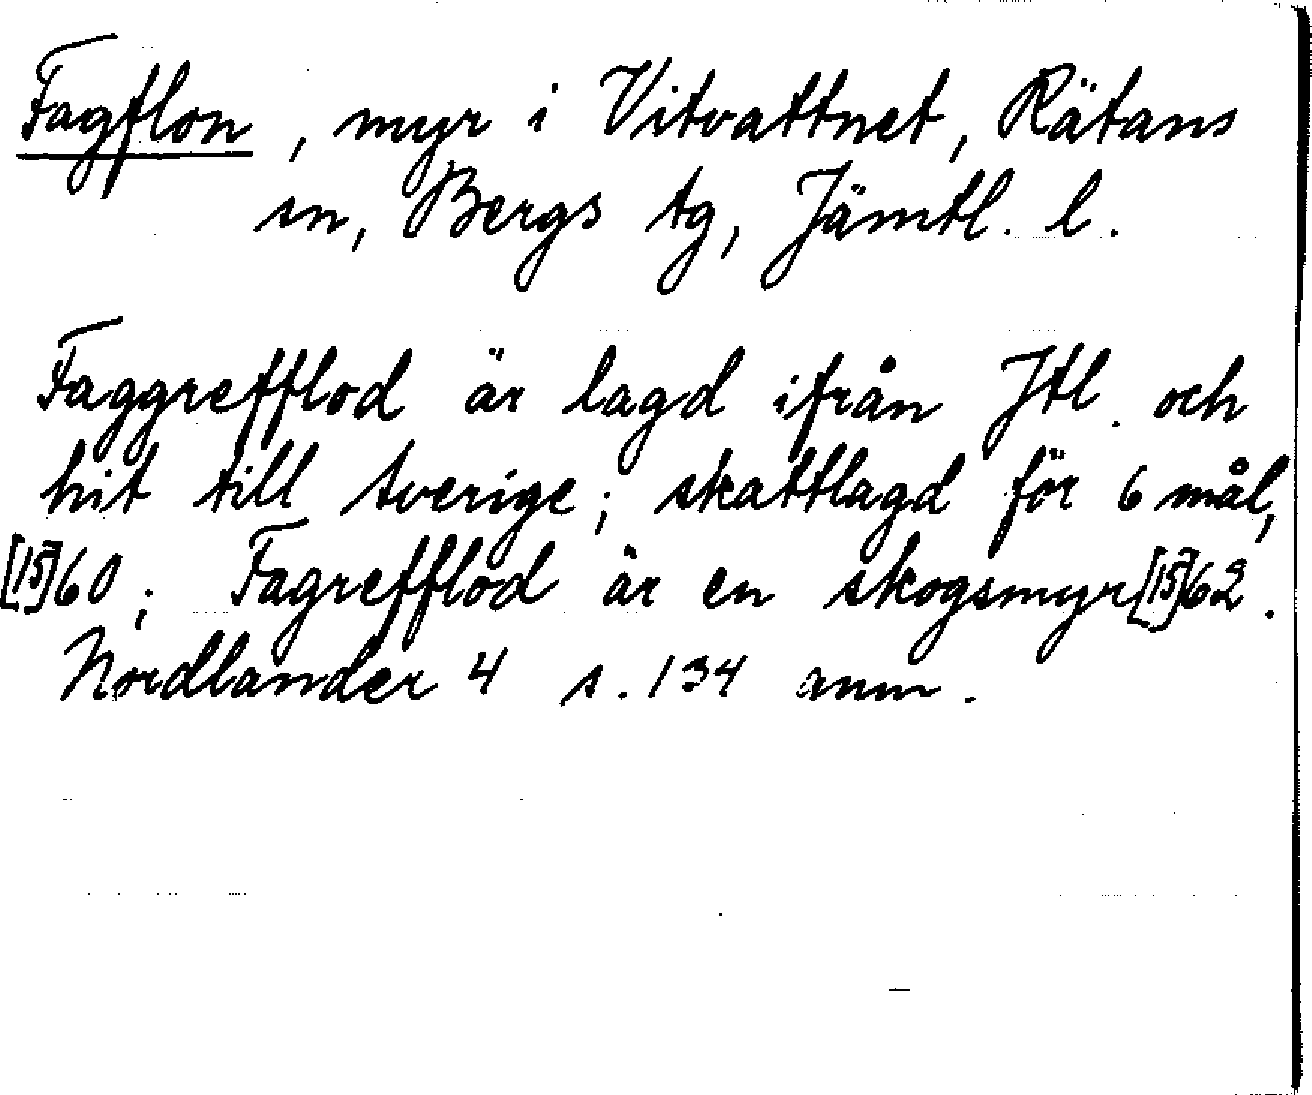 Fagflon, myr i Vitvattnet, Rätans
sn, Bergs tg, Jämtl. l.
Faggrefflod är lagd ifrån Jtl. och
hit till sverige; skattlagd för 6 mål,
[15]60; Fagrefflod är en skogsmyr [15]62.
Nordlander 4 s. 134 anm.